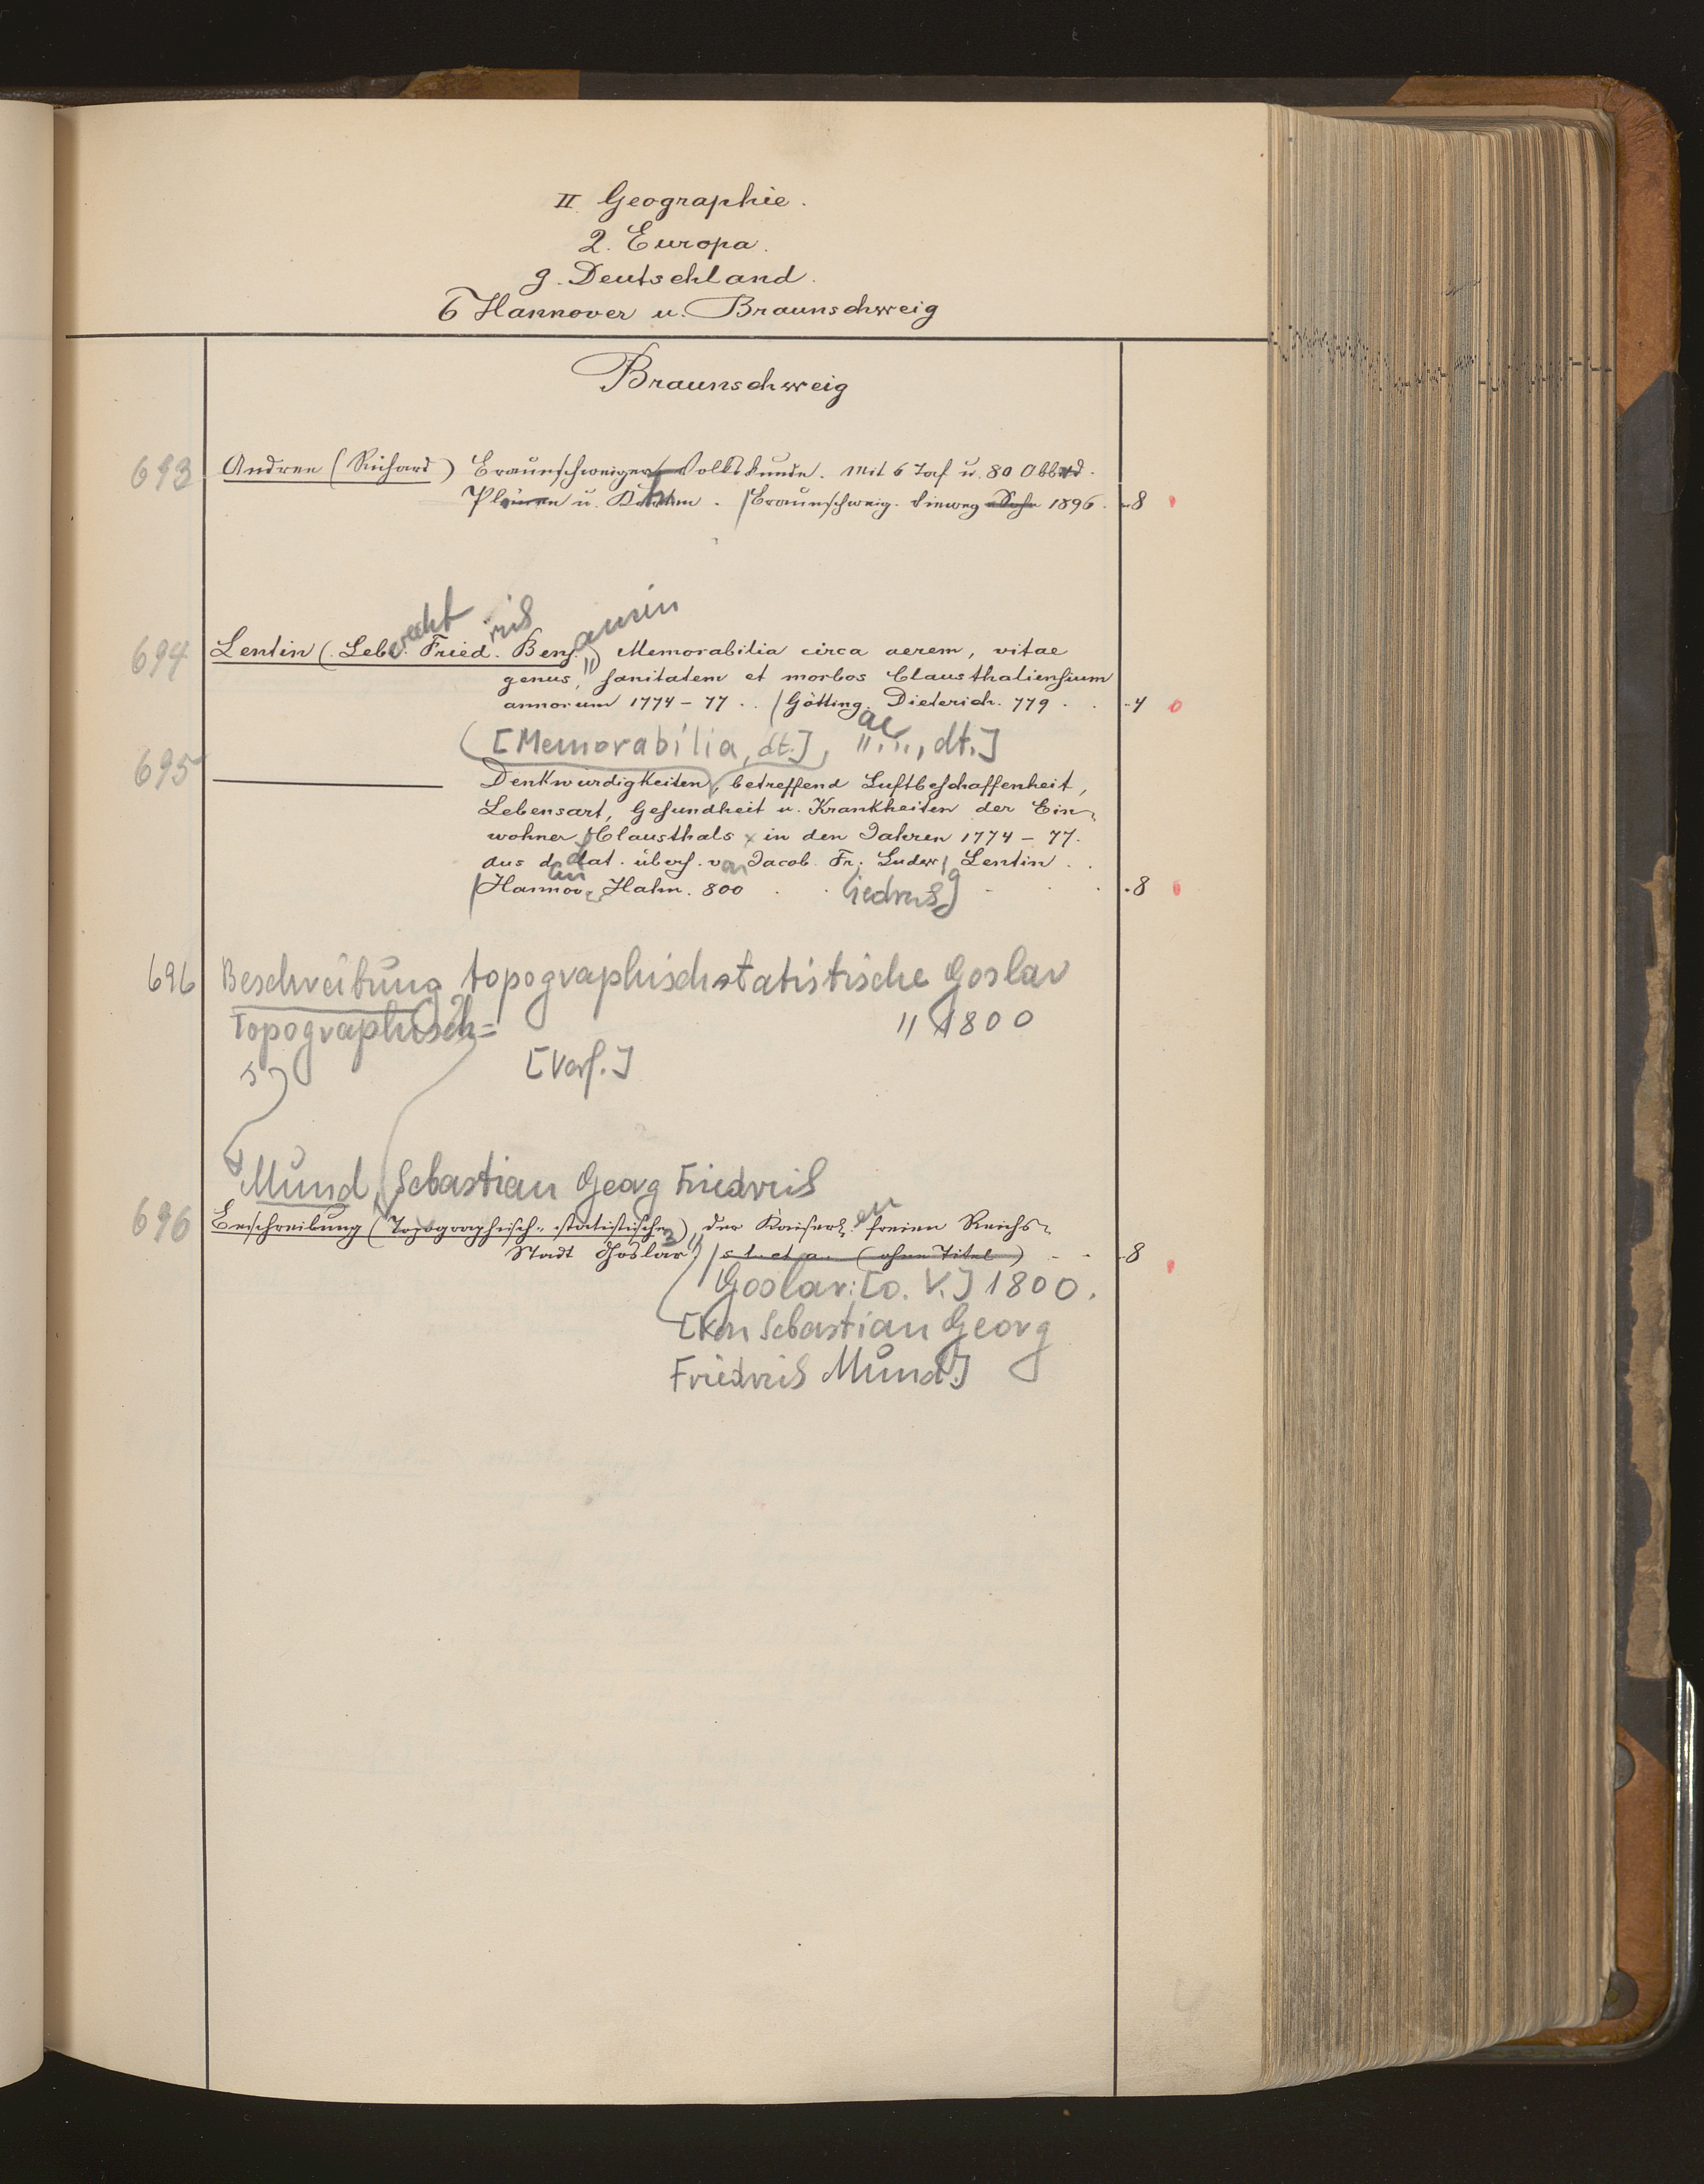 II. Geographie.
2. Europa.
g. Deutschland.
6 Hannover u. Braunschweig
Braunschweig
693 Andree (Richard) Braunschweiger Volkskunde. Mit 6 Taf u. 80 Abbild.
Plänen u. Karten. / Braunschweig. Vieweg Sohn 1896. -8
recht rich amin
694 Lentin (Lebr. Fried. Benj.) Memorabilia circa aerem, vitae
genus, sanitatem et morbos Clausthaliensium
annorum 1774-77 .. / Götting. Dieterich. 779 . . -4 0
ae
([Memorabilia, dt.], ".", dt.]
695 ——— Denkwürdigkeiten, betreffend Luftbeschaffenheit,
Lebensart, Gesundheit u. Krankheiten der Ein-
wohner Clausthals in den Jahren 1774-77.
Aus d. Lat. übers. v. Jacob Fr. Ludw. Lentin ..
/ Hannov. Hahn. 800 . . . . -8
iedrich
696 Beschreibung topographischstatistische Goslar
Topographisch= " 1800
[Verf.]
Mund, Sebastian Georg Friedrich
696 Beschreibung (Topographisch-statistische) der Kaiserl. freien Reichs-
Stadt Goslar. / s. l. et a. (ohne Titel) - - -8
Goslar: [o. V.] 1800.
[Von Sebastian Georg
Friedrich Mund.]